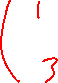 ( 1
3